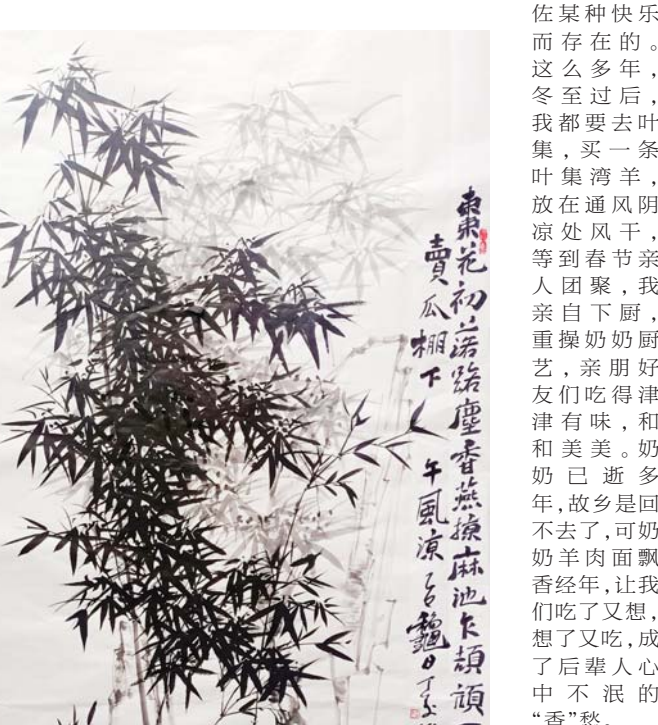 棗花初落路塵香燕掠麻池乍頡頏
賣瓜棚下午風涼
佐某种快乐
而存在的。
这么多年，
冬至过后，
我都要去叶
集，买一条
叶集湾羊，
放在通风阴
凉处风干，
等到春节亲
人团聚，我
亲自下厨，
重操奶奶厨
艺，亲朋好
友们吃得津
津有味，和
和美美。奶
奶已逝多
年，故乡是回
不去了，可奶
奶羊肉面飘
香经年，让我
们吃了又想，
想了又吃，成
了后辈人心
中不泯的
“香”愁。